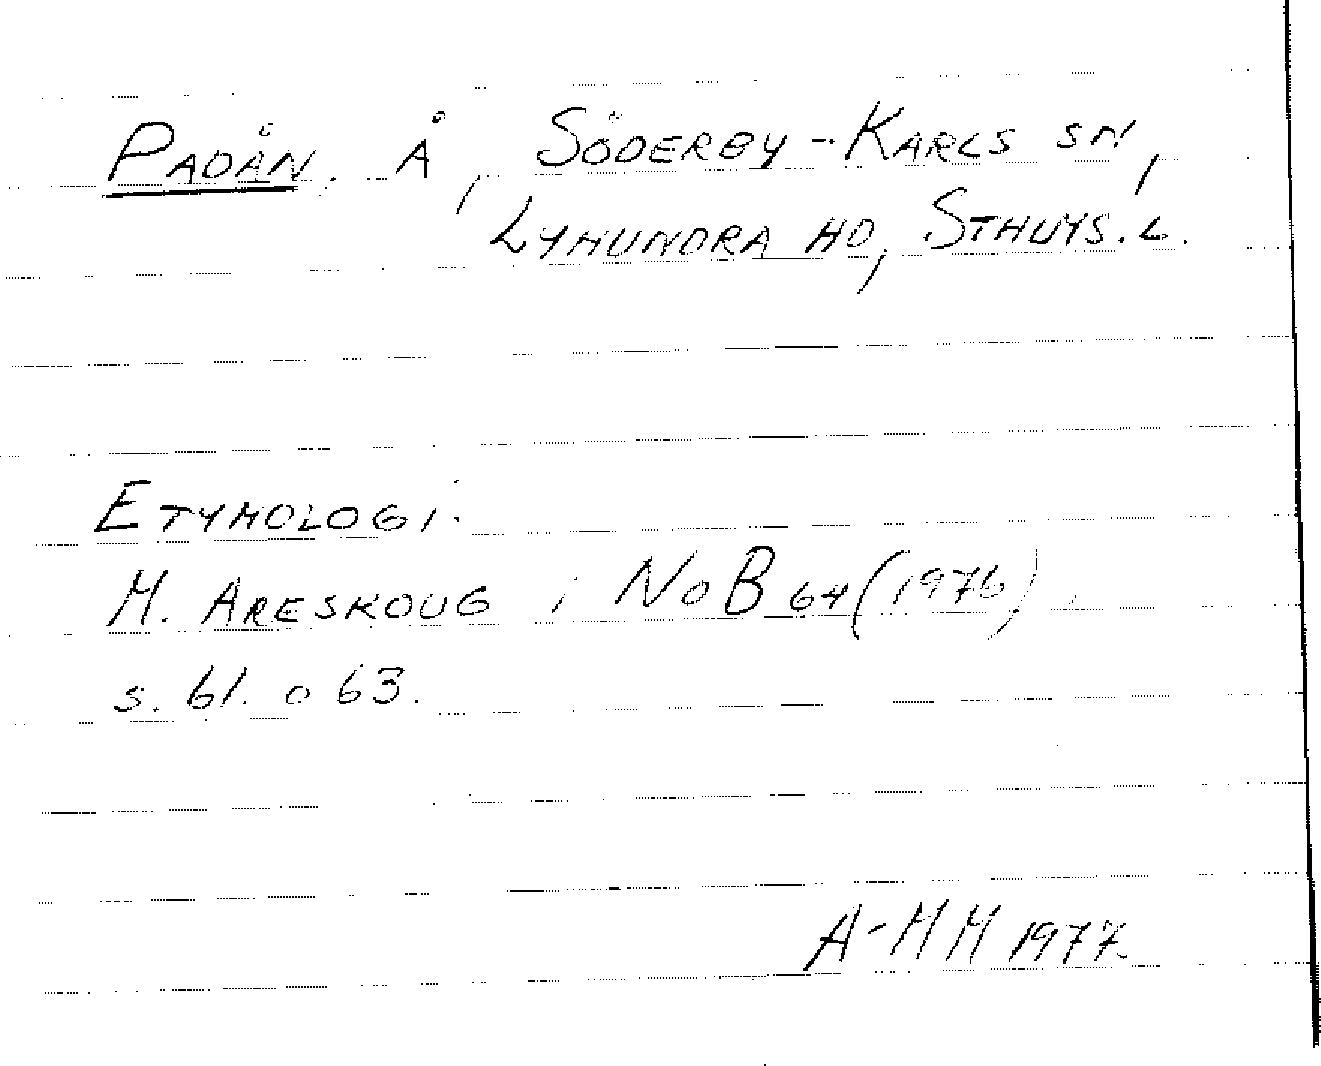 PADÅN. Å, SÖDERBY-KARLS SN,
LYHUNDRA HD, STHLMS. L.
ETYMOLOGI:
M. ARESKOUG i NoB 64 (1976)
s. 61. o 63.
A-MM 1977